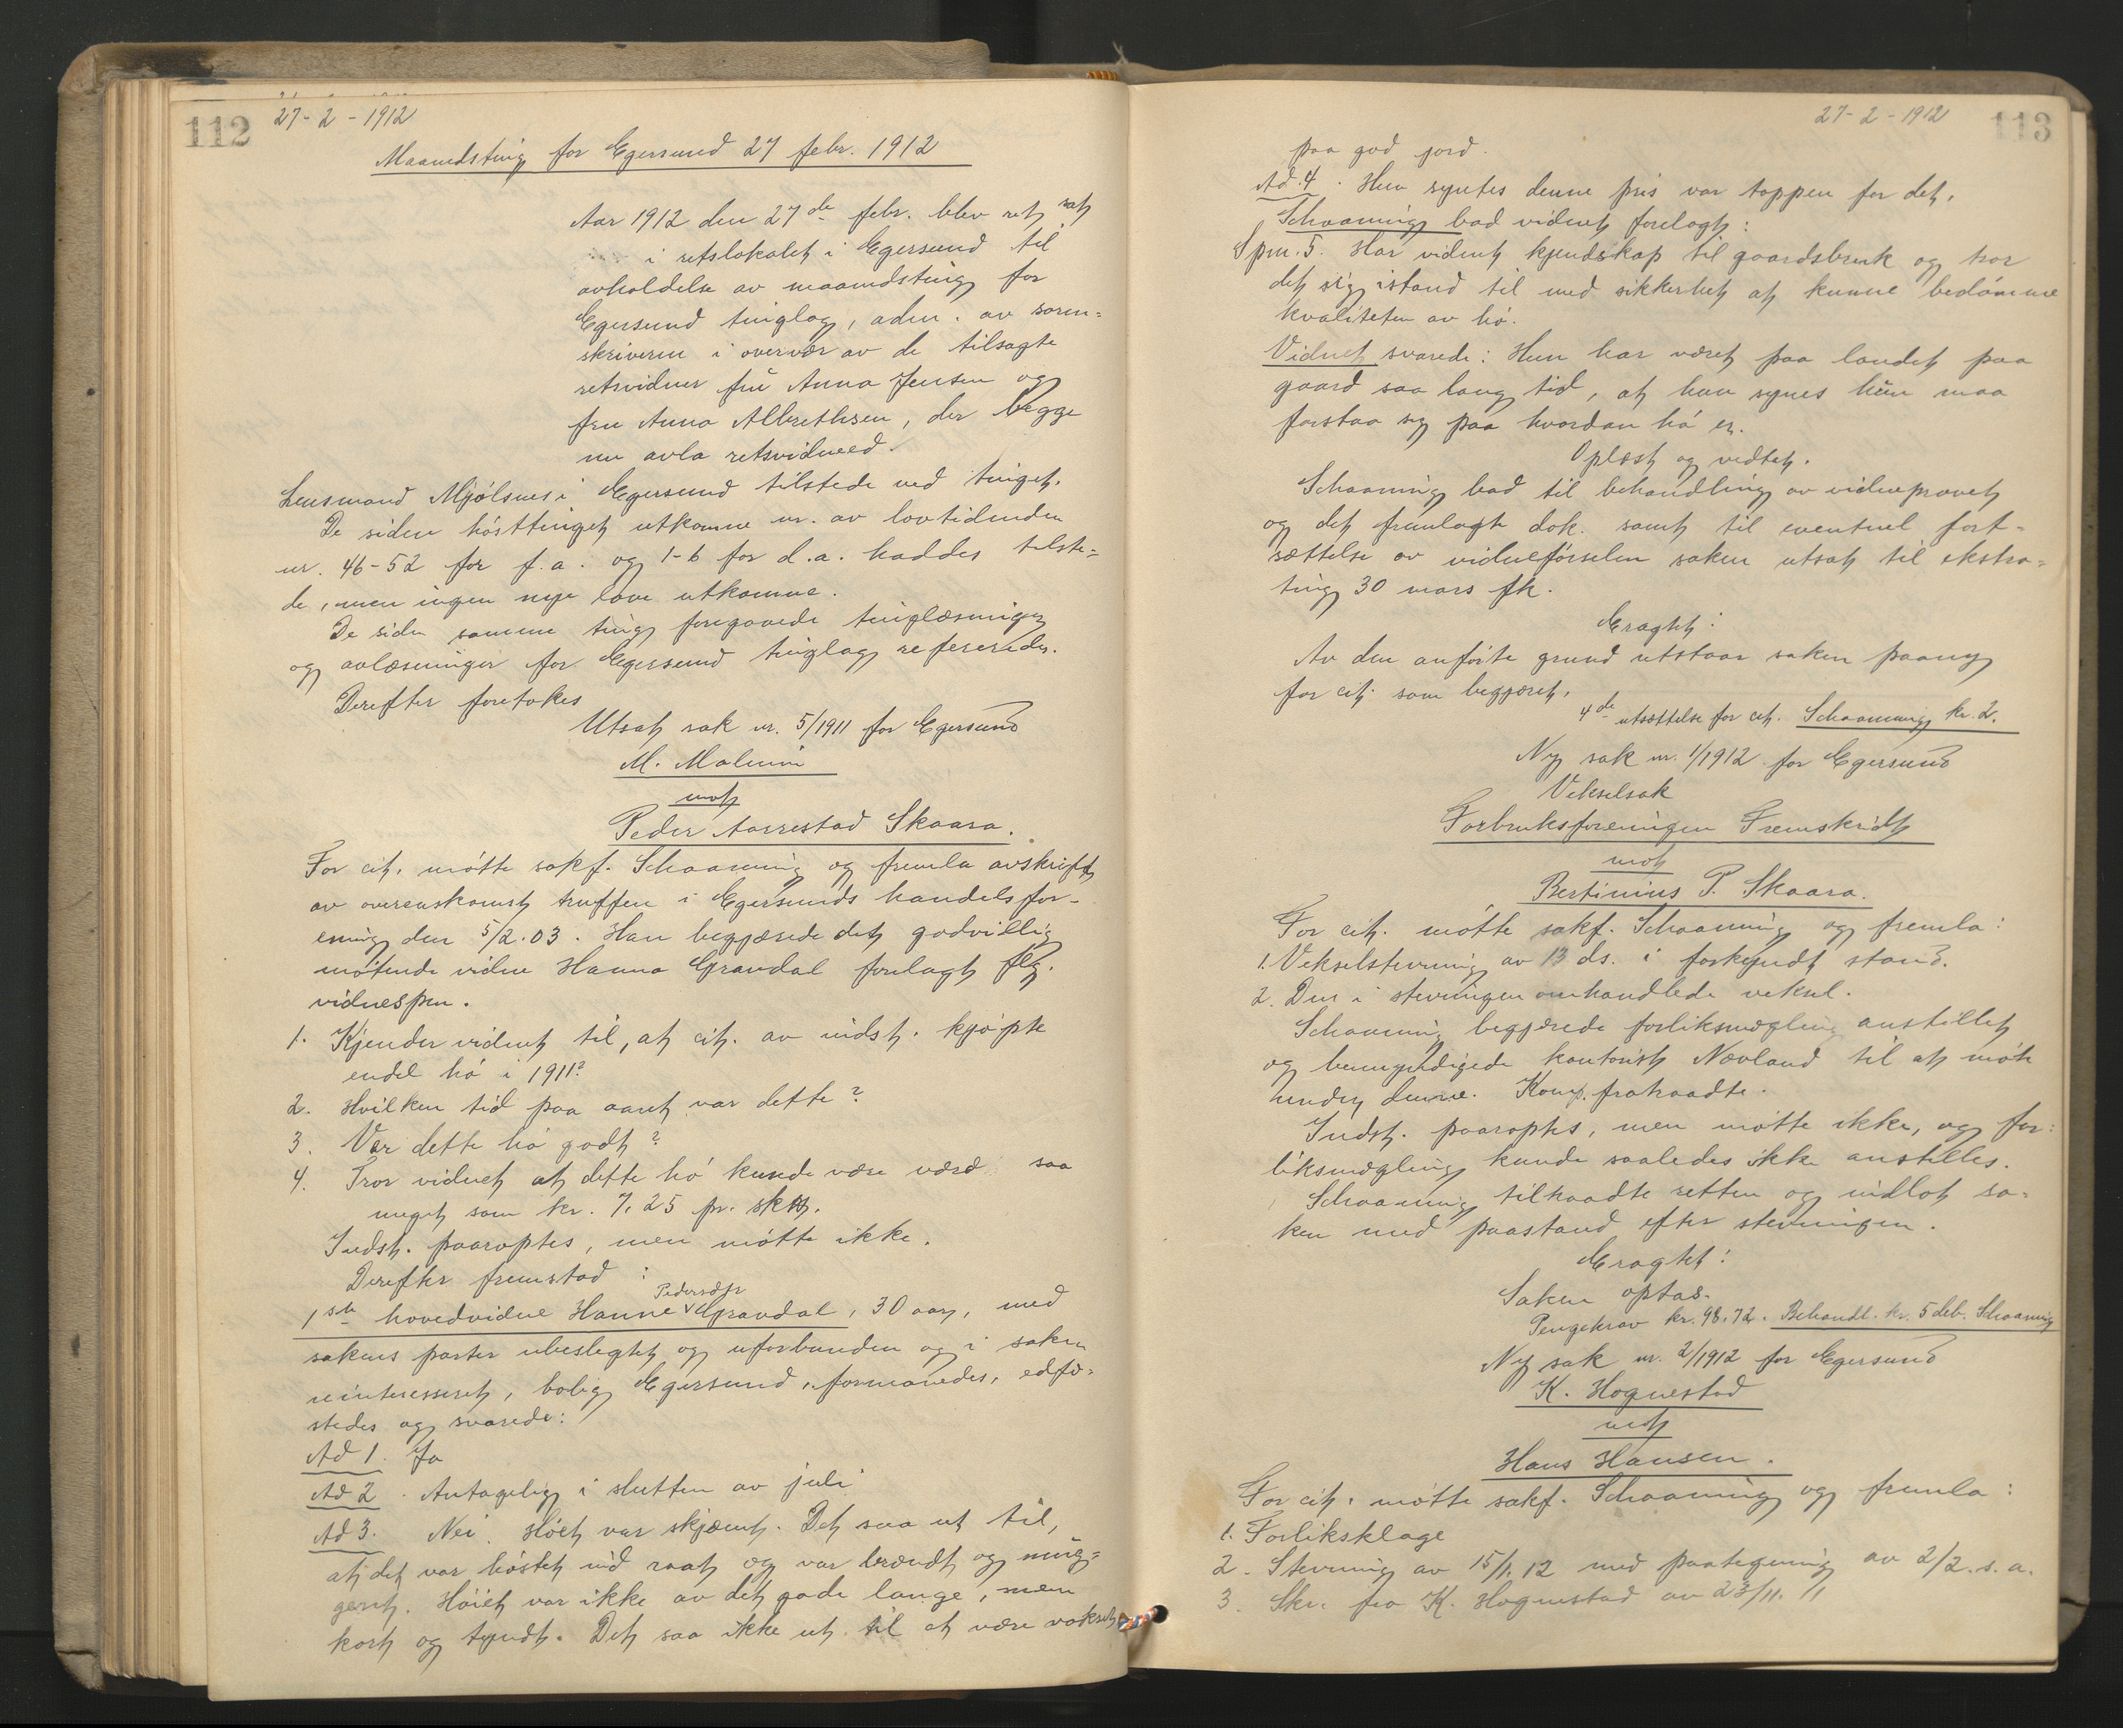 112
27-2-1912
Maanedsting for Egersund 27 febr. 1912
Aar 1912 den 27de febr. blev ret sat
i retslokalet i Egersund til
avholdelse av maanedsting for
Egersund tinglag, adm. av soren=
skriveren i overvær av de tilsagte
retsvidner fru Anna Jensen og
fru Anna Albrethsen, der begge
nu avla retsvidneed.
Lensmand Mjølsnes i Egersund tilstede ved tinget.
De siden høsttinget utkomne nr. av lovtidenden
nr. 46-52 for f.a. og 1-6 for d.a. haddes tilste=
de, men ingen nye love utkomne.
De siden samme ting foregaaede tinglæsninger
og avlæsninger for Egersund tinglag refereredes.
Derefter foretokes
Utsat sak nr. 5/1911 for Egersund
M. Malmin
mot
Peder Aarrestad Skaara.
For cit. møtte sakf. Schaanning og fremla avskrift
av overenskomst truffen i Egersunds handelsfor-
ening den 5/2.03. Han begjærede det godvillig
møtende vidne Hanna Gravdal forelagt flg.
vidnespm.
1. Kjender vidnet til, at cit. av indst. kjøpte
endel hø i 1911?
2. Hvilken tid paa aaret var dette?
3. Var dette hø godt?
4. Tror vidnet at dette hø kunde være værd saa
meget som kr. 7,25 pr. skpd.
Indst. paaroptes, men møtte ikke.
Derefter fremstod :
Pedersdtr
1ste hovedvidne Hanne Gravdal, 30 aar, med
sakens parter ubeslegtet og uforbunden og i saken
uinteresseret, bolig Egersund, formanedes, edfæ-
stedes og svarede:
Ad 1. Ja
Ad 2. Antagelig i slutten av juli
Ad 3. Nei. Høiet var skjæmt. Det saa ut til,
at det var høstet ind raat og var brændt og mug=
gent. Høiet var ikke av det gode lange, men
kort og tyndt. Det saa ikke ut til at være vokset
27-2-1912
113
paa god jord.
Ad.4. Hun syntes denne pris var toppen for det.
Schaanning bad vidnet forelagt:
Spm. 5. Har vidnet kjendskap til gaardsbruk og tror
det sig istand til med sikkerhet at kunne bedømme
kvaliteten av hø.
Vidnet svarede: Hun har været paa landet paa
gaard saa lang tid, at hun synes hun maa
forstaa sig paa hvordan hø er.
Oplæst og vedtat.
Schaanning bad til behandling av vidneprovet
og det fremlagte dok. samt til eventuel fort-
sættelse av vidneførselen saken utsat til ekstra=
ting 30 mars fk.
Eragtet:
Av den anførte grund utstaar saken paany
for cit. som begjæret.
4de utsættelse for cit. Schaanning kr. 2.
Ny sak nr. 1/1912 for Egersund
Vekselsak
Forbruksforeningen Fremskridt
mot
Bertinius P. Skaara.
For cit. møtte sakf. Schaanning og fremla:
1. Vekselstevning av 13 ds. i forkyndt stand.
2. Den i stevningen omhandlede veksel.
Schaanning begjærede forliksmægling anstillet
og bemyndigede kontorist Nævland til at møte
under denne. Komp. fratraadte.
Indst. paaroptes, men møtte ikke, og for=
liksmægling kunde saaledes ikke anstilles.
Schaanning tiltraadte retten og indlot sa-
ken med paastand efter stevningen.
Eragtet:
Saken optas.
Pengekrav kr. 98,72. Behandl. kr. 5 deb. Schaanning
Ny sak nr. 2/1912 for Egersund
K. Hognestad
mot
Hans Hansen.
For cit. møtte sakf. Schaanning og fremla:
1. Forliksklage
2. Stevning av 15/1.12 med paategning av 2/2.s.a.
3. Skr. fra K. Hognestad av 23/11.11